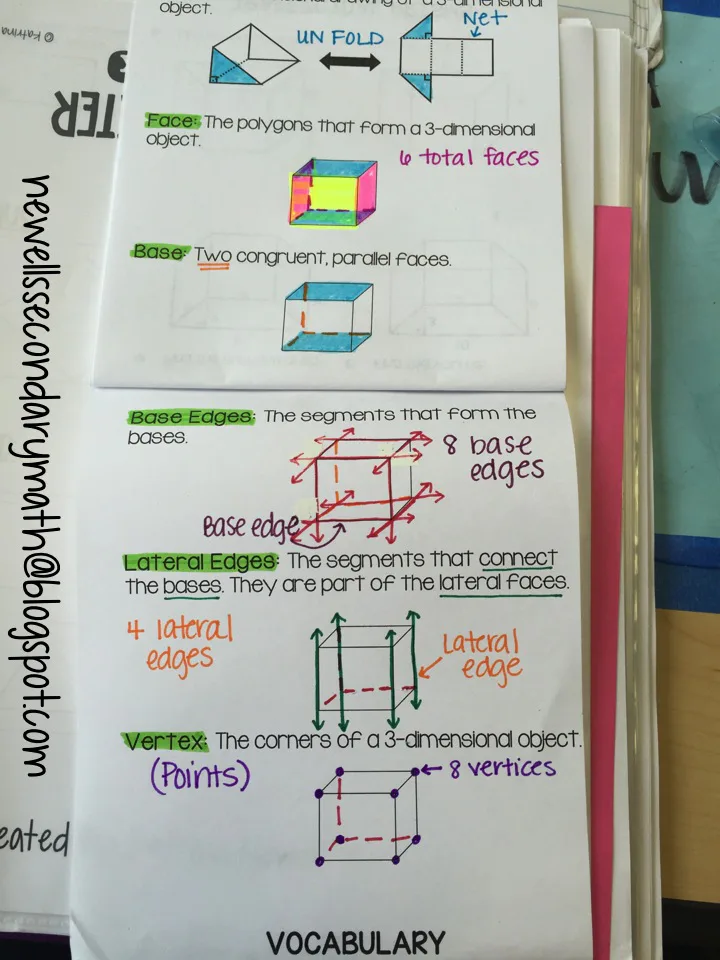 object.
UNFOLD
Net
Face: The polygons that form a 3-dimensional
object.
6 total faces
Base: Two congruent, parallel faces.
Base Edges: The segments that form the
bases.
8 base
edges
Base edge
Lateral Edges: The segments that connect
the bases. They are part of the lateral faces.
4 lateral
edges
Lateral
edge
Vertex: The corners of a 3-dimensional object.
(Points)
8 vertices
VOCABULARY
newellssecondarymath@blogspot.com
© Katrina
eated